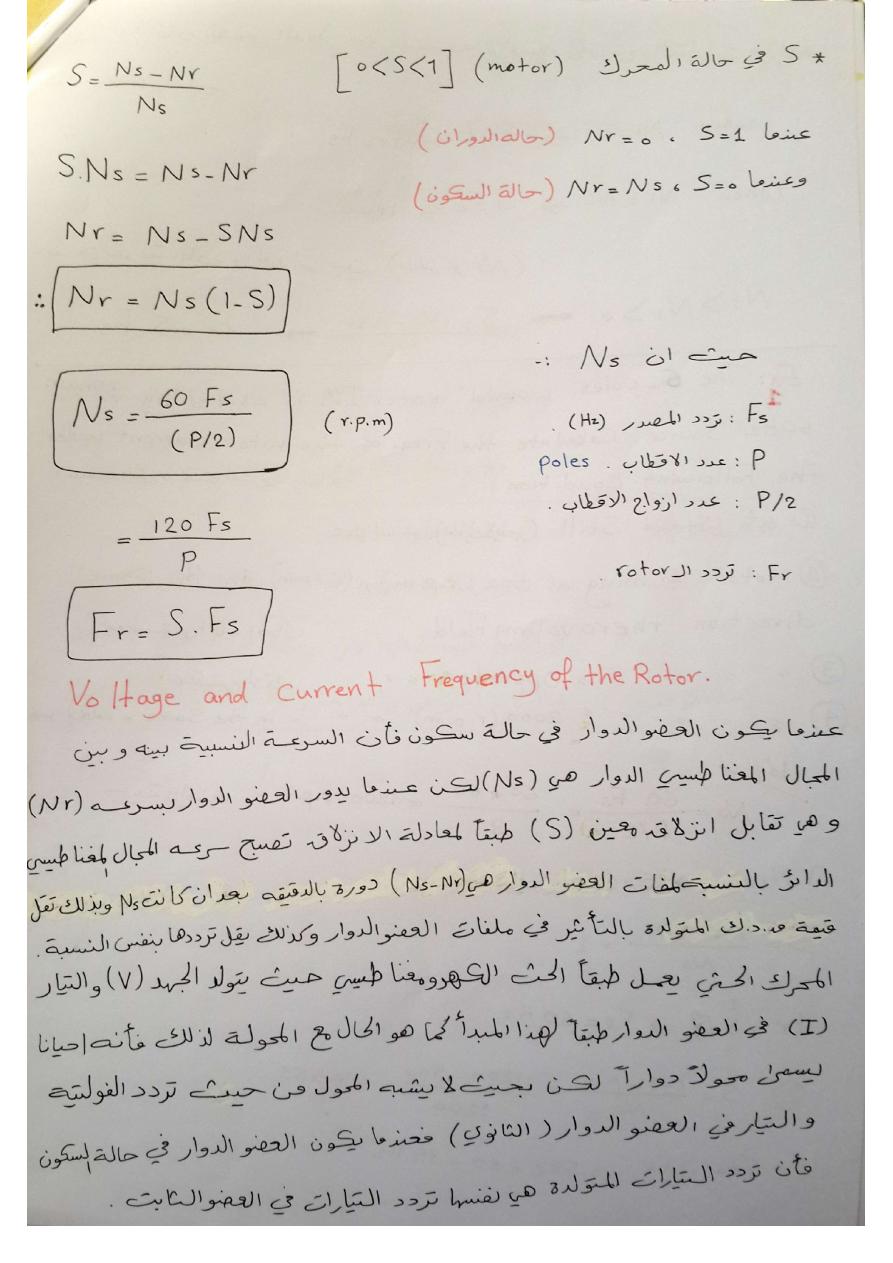 * S في حالة المحرك (motor) [0<S<1]
S = Ns - Nr / Ns
عندما S=1 ، Nr = 0 (حاله الدوران)
S.Ns = Ns - Nr
وعندما S=0 ، Nr = Ns (حالة السكون)
Nr = Ns - SNs
∴ Nr = Ns (1-S)
حيث ان Ns :-
Ns = 60 Fs / (P/2) (r.p.m)
1
Fs : تردد المصدر (Hz) .
P : عدد الاقطاب . poles
P/2 : عدد ازواج الاقطاب .
= 120 Fs / P
Fr : تردد الـ rotor.
Fr = S . Fs
Voltage and Current Frequency of the Rotor.
عندما يكون العضو الدوار في حالة سكون فأن السرعة النسبية بينه و بين
المجال المغناطيسي الدوار هي (Ns) لكن عندما يدور العضو الدوار بسرعه (Nr)
وهي تقابل انزلاق معين (S) طبقاً لمعادلة الانزلاق تصبح سرعه المجال المغناطيسي
الدائر بالنسبة لملفات العضو الدوار هي (Ns-Nr) دورة بالدقيقه بعد ان كانت Ns وبذلك تقل
قيمة ق.د.ك المتولدة بالتأثير في ملفات العضو الدوار وكذلك يقل ترددها بنفس النسبة .
المحرك الحثي يعمل طبقاً الحث الكهرومغناطيسي حيث يتولد الجهد (V) والتيار
(I) في العضو الدوار طبقاً لهذا المبدأ كما هو الحال مع المحولة لذلك فأنه احيانا
يسمى محولاً دواراً لكن بحيث لا يشبه المحول من حيث تردد الفولتية
والتيار في العضو الدوار (الثانوي) فعندما يكون العضو الدوار في حالة السكون
فأن تردد التيارات المتولدة هي نفسها تردد التيارات في العضو الثابت .